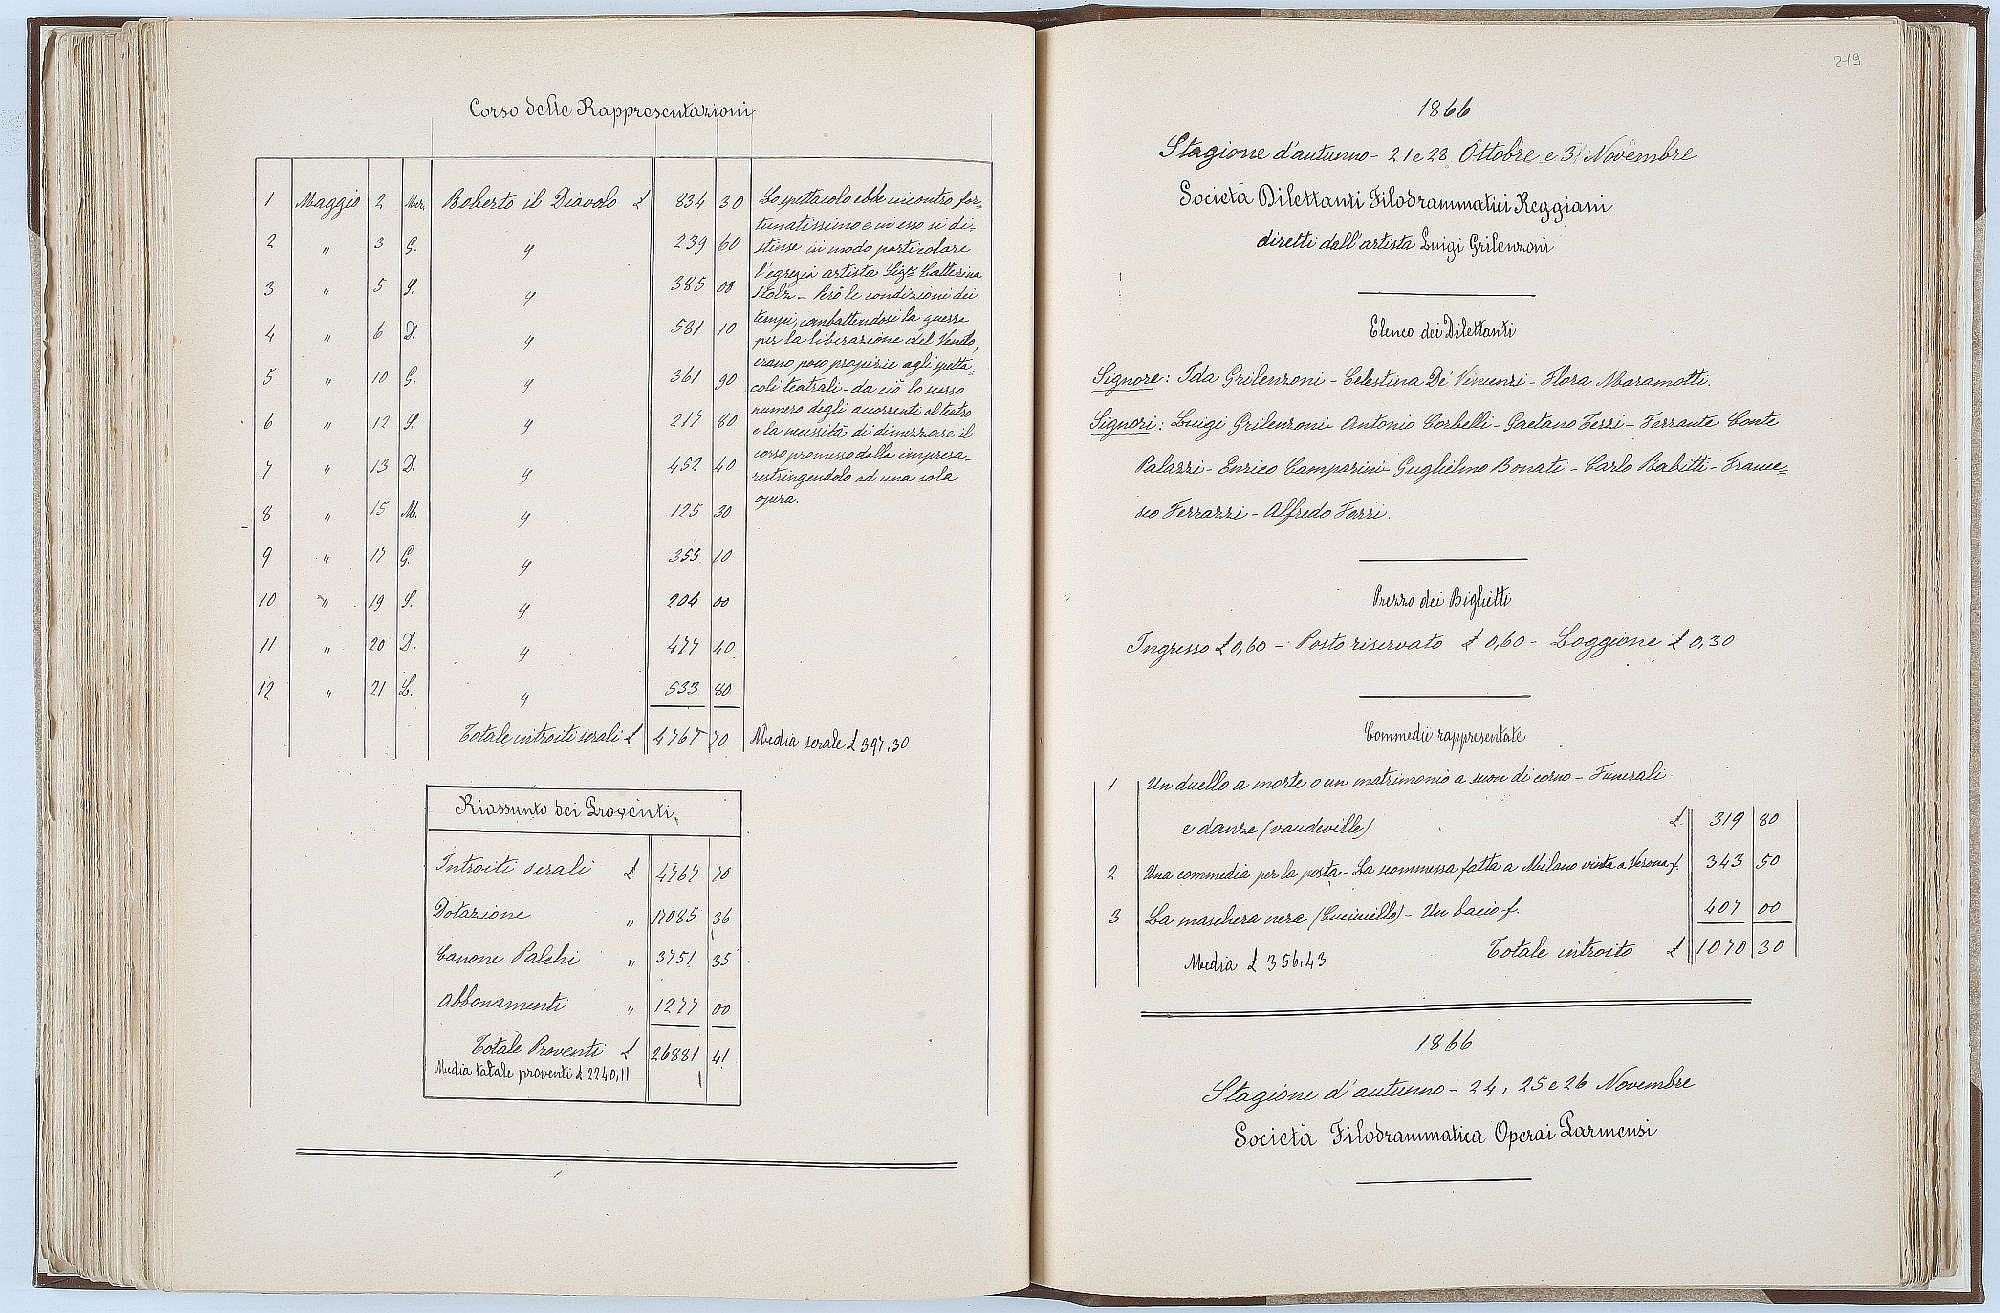 Corso delle Rappresentazioni
1 Maggio 2 Mer. Roberto il Diavolo £ 834 30
2 " 3 G. " 239 60
3 " 5 S. " 385 00
4 " 6 D. " 581 10
5 " 10 G. " 361 90
6 " 12 S. " 217 80
7 " 13 D. " 452 40
8 " 15 M. " 125 30
9 " 17 G. " 355 10
10 " 19 S. " 204 00
11 " 20 D. " 477 40
12 " 21 L. " 533 80
Totale introiti serali £ 4767 70 Media serale £ 397,30
Lo spettacolo ebbe incontro for-
tunatissimo e in esso si di-
stinse in modo particolare
l'egregia artista Sigra Catterina
Stolz - Però le condizioni dei
tempi, combattendosi la guerra
per la liberazione del Veneto,
erano poco propizie agli spetta-
coli teatrali - da ciò lo scarso
numero degli accorrenti al teatro
e la necessità di dimezzare il
corso promesso dalla impresa -
restringendolo ad una sola
opera.
Riassunto dei Proventi
Introiti serali £ 4767 70
Dotazione " 17085 36
Canone Palchi " 3751 35
Abbonamenti " 1277 00
Totale Proventi £ 26881 41
Media totale proventi £ 2240,11
219
1866
Stagione d'autunno - 21 e 28 Ottobre e 3 Novembre
Società Dilettanti Filodrammatici Reggiani
diretti dall'artista Luigi Grilenzoni
Elenco dei Dilettanti
Signore: Ida Grilenzoni - Celestina De' Vincenzi - Flora Maramotti.
Signori: Luigi Grilenzoni Antonio Corbelli - Gaetano Ferri - Ferrante Conte
Palazzi - Enrico Camparini Guglielmo Bonati - Carlo Babitti - France=
sco Ferrazzi - Alfredo Farri.
Prezzo dei Biglietti
Ingresso £ 0,60 - Posto riservato £ 0,60 - Loggione £ 0,30
Commedie rappresentate
1 Un duello a morte o un matrimonio a suon di corno - Funerali
e danze (vaudeville) £ 319 80
2 Una commedia per la posta - La scommessa fatta a Milano vinta a Verona f. 343 50
3 La maschera nera (Cuciniello) - Un bacio f. 407 00
Media £ 356,43 Totale introito £ 1070 30
1866
Stagione d'autunno - 24, 25 e 26 Novembre
Società Filodrammatica Operai Parmensi